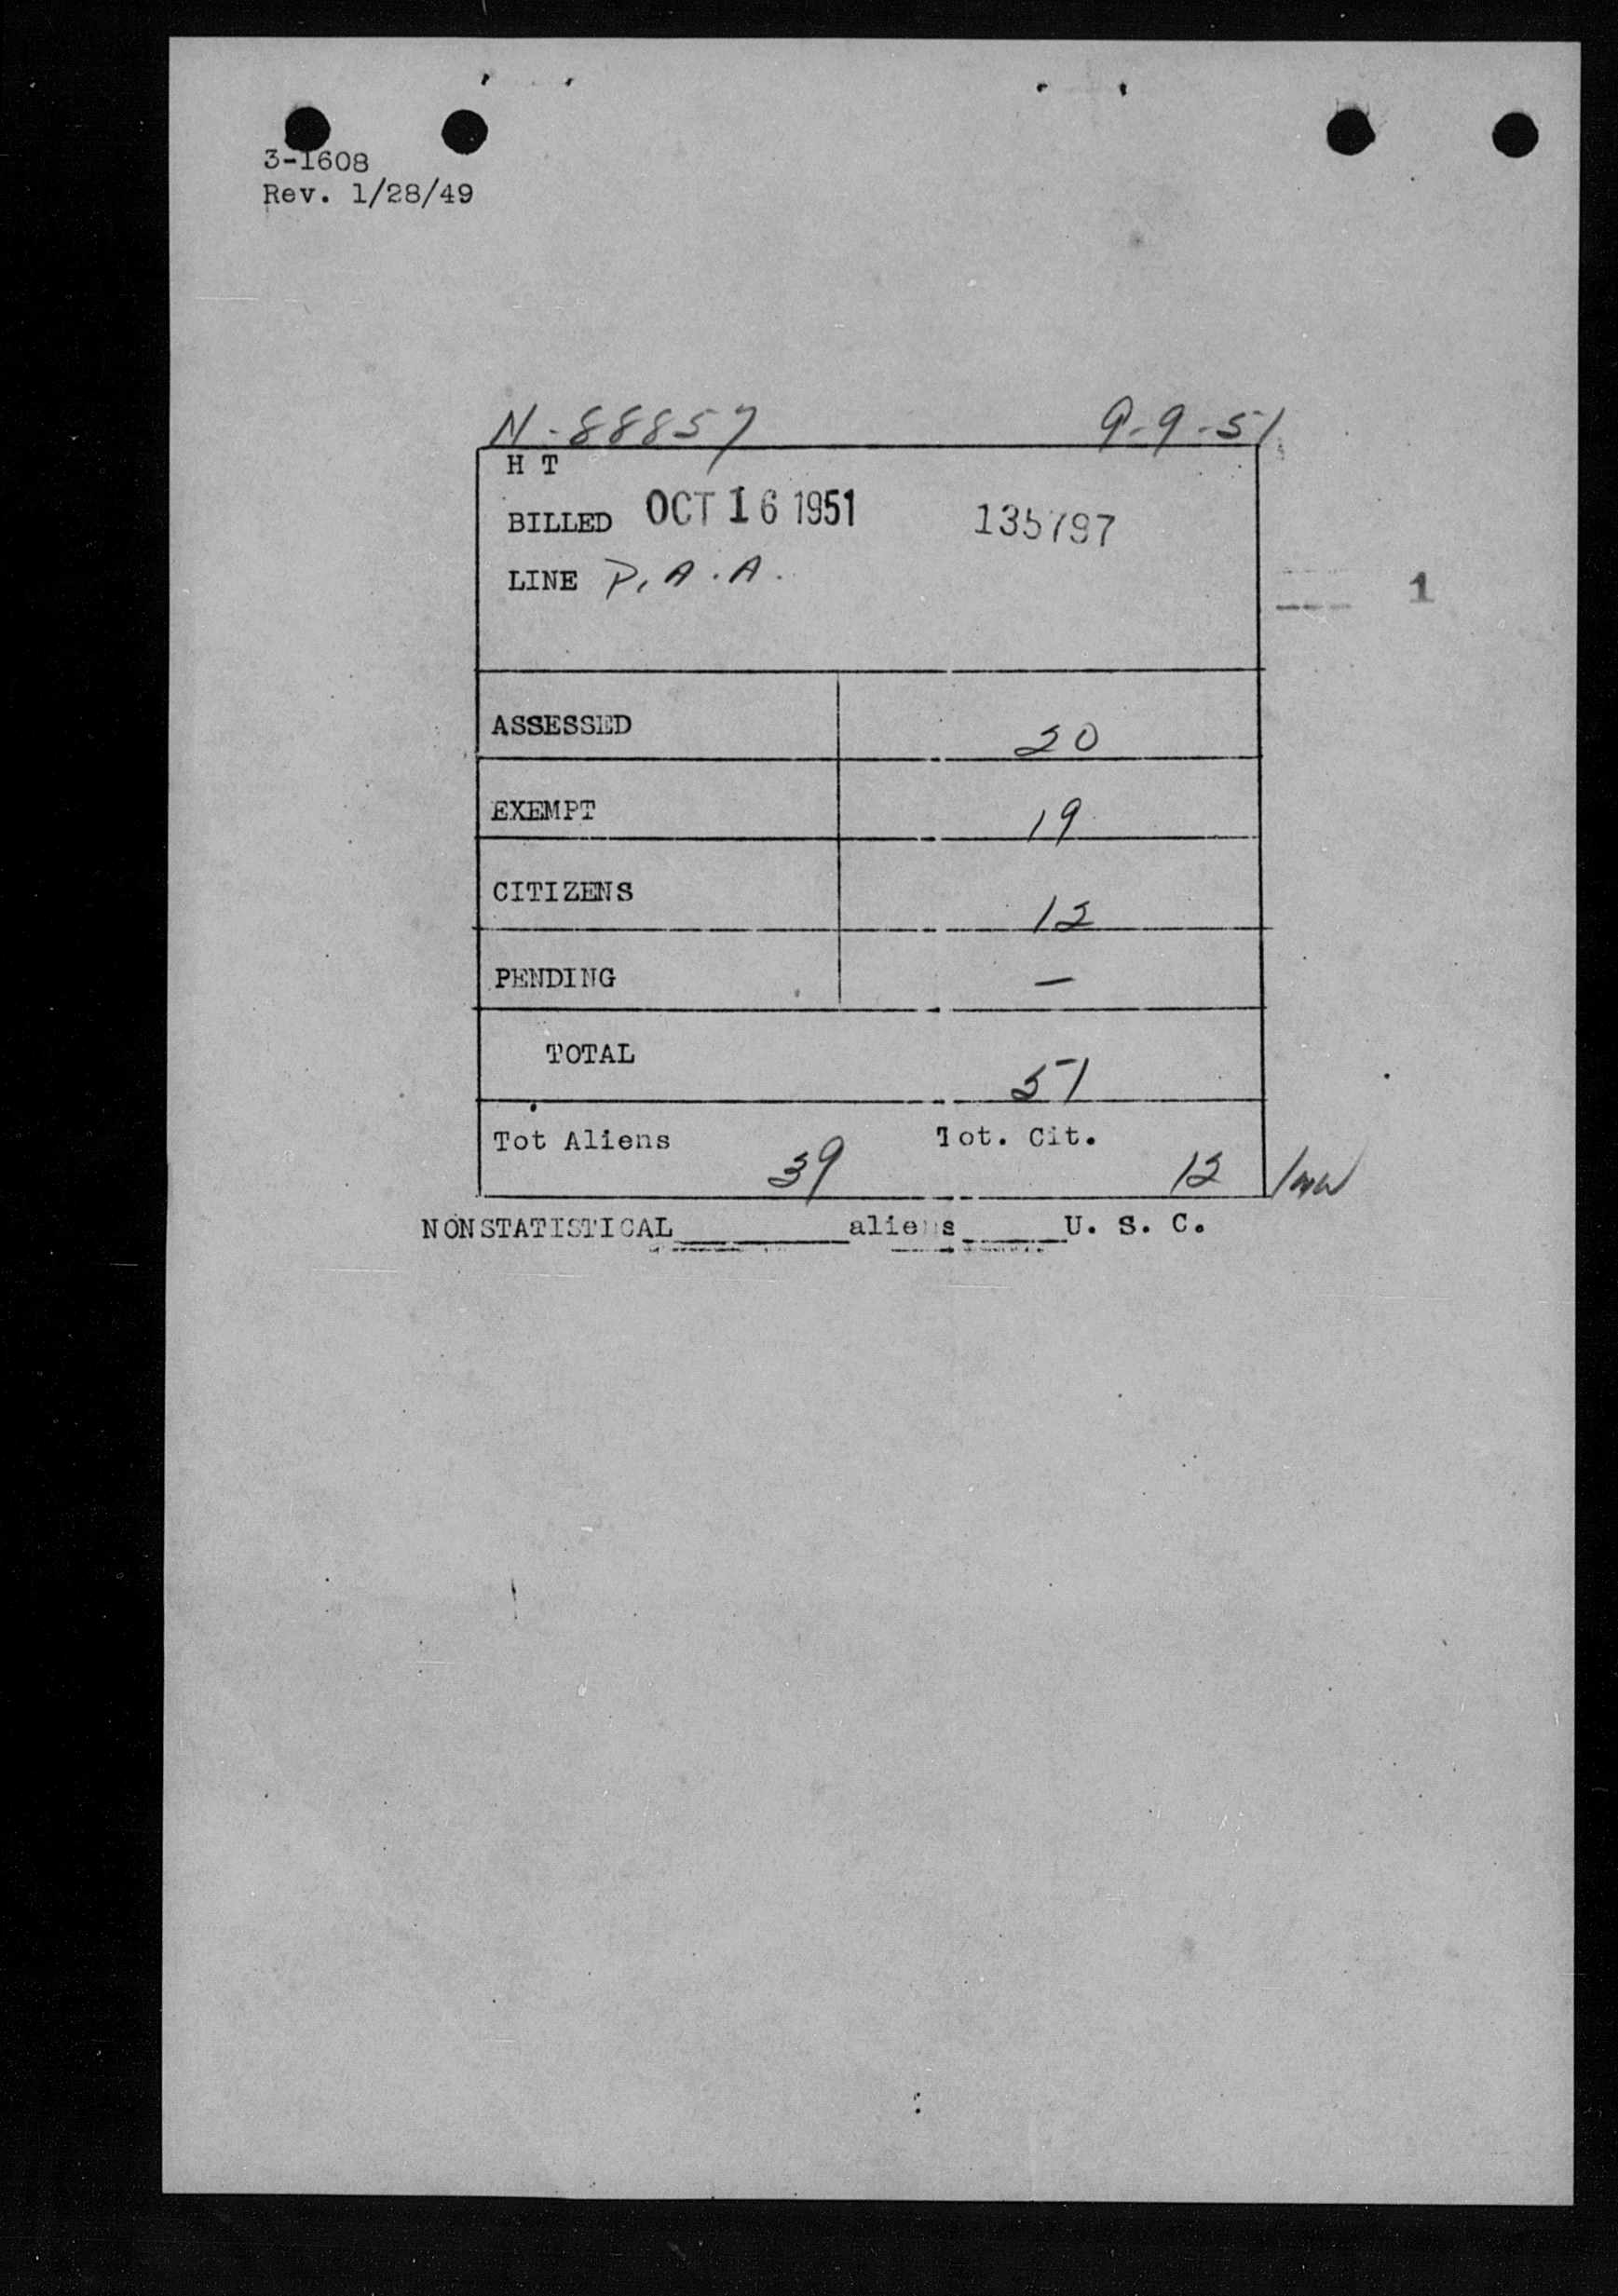 3-1608
Rev. 1/28/49
N-88857 9-9-51
H T
BILLED OCT 16 1951 135797
LINE P.A.A.
1
ASSESSED 20
EXEMPT 19
CITIZENS 12
PENDING —
TOTAL 51
Tot Aliens 39 Tot. Cit. 12
NONSTATISTICAL______aliens____U. S. C.